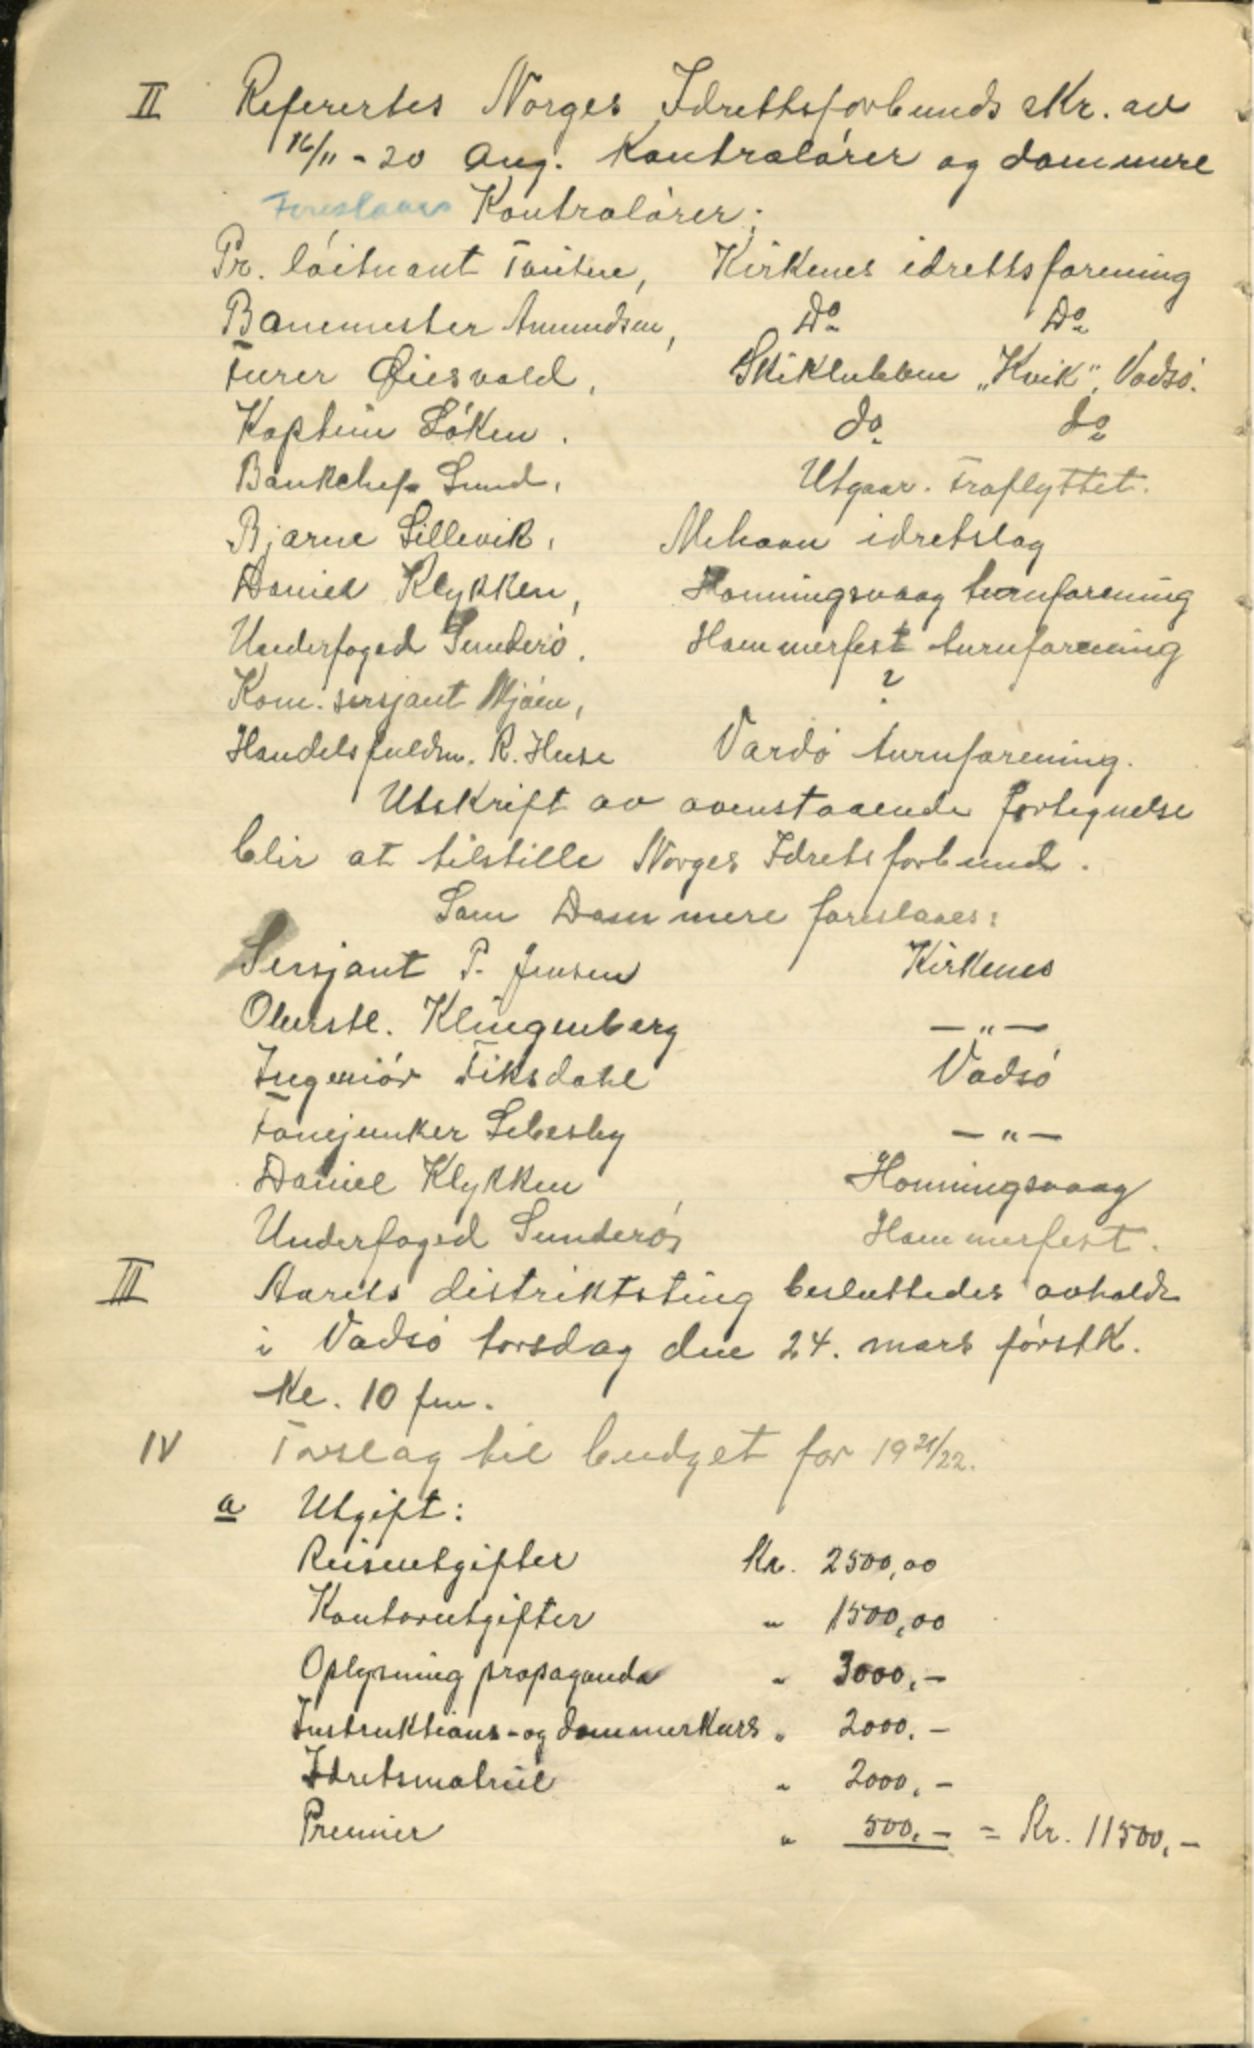 II Referertes Norges Idrettsforbunds skr. av
16/11 - 20 Ang. Kontrolører og dommere
Foreslaaes Kontrolører:
Pr. löitnant Kirkenes idrettsforening
Banemester Amundsen, Do Do
Furer Öiesvold, Skiklubben "Kvik", Vadsö.
Kaptein Löken. do do
Bankchef Lund, Utgaar. Fraflyttet.
Bjarne Lillevik, Mehavn idretslag
Daniel Klykken, Honningsvaag turnforening
Underfoged Sunderö. Hammerfest turnforening
Kom. sersjant Mjöen, ?
Handelsfuldm. R. Huse Vardö turnforening.
Utskrift av ovenstaaende fortegnelse
blir at tilstille Norges Idretsforbund.
Som Dommere foreslaaes:
Sersjant P. Jensen Kirkenes
Oberstl. Klingenberg — " —
Ingeniör Fiksdahl Vadsö
Fanejunker Lebesby — " —
Daniel Klykken Honningsvaag
Underfoged Sunderö, Hammerfest.
III Aarets distriktsting besluttedes avholdt
i Vadsö torsdag den 24. mars förstk.
Kl. 10 fm.
IV Forslag til budget for 1921/22.
a Utgift:
Reiseutgifter Kr. 2500,00
Kontorutgifter " 1500,00
Oplysning propaganda " 3000,-
Instruktions- og dommerkurs " 2000,-
Idretsmatriel " 2000,-
Premier " 500,- = Kr. 11500,-